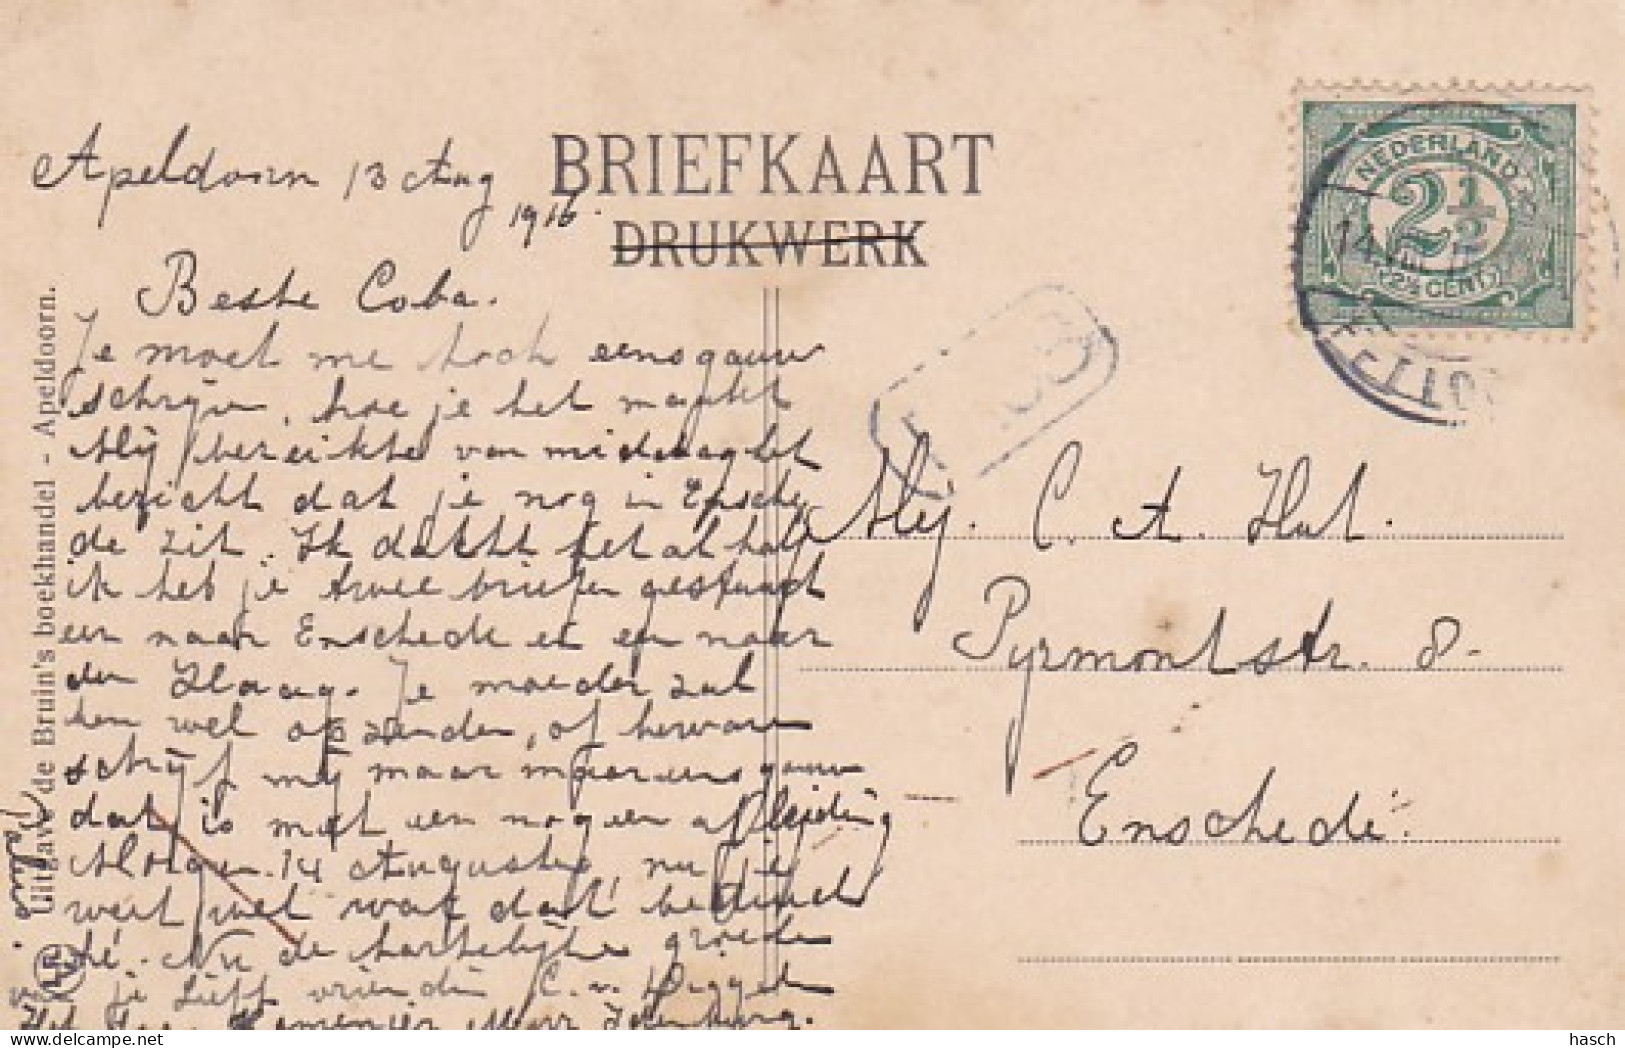 BRIEFKAART
DRUKWERK
NEDERLAND
2½
2½ CENT
Apeldoorn 13 Aug
1916.
Beste Coba.
Je moet me toch eens gauw
schrijven, hoe je het maakt
Mij bereikte van middag het
bericht dat je nog in Ensche
de zit. Ik dacht het al half
ik heb je twee brieven gestuurd
een naar Enschede en een naar
den Haag. Je moeder zal
hem wel opzenden, of
schrijf mij maar eens gauw
dat is met een nog een afleiding
Morgen 14 Augustus, nu je
weet wel wat dat beduid
hé. Nu de hartelijke groeten
v. je Lieff vriendin C. v.
Mej. C. A. Hut.
Pyrmontstr. 8.
Enschede.
Uitgave de Bruin's boekhandel - Apeldoorn.
hasch
www.delcampe.net